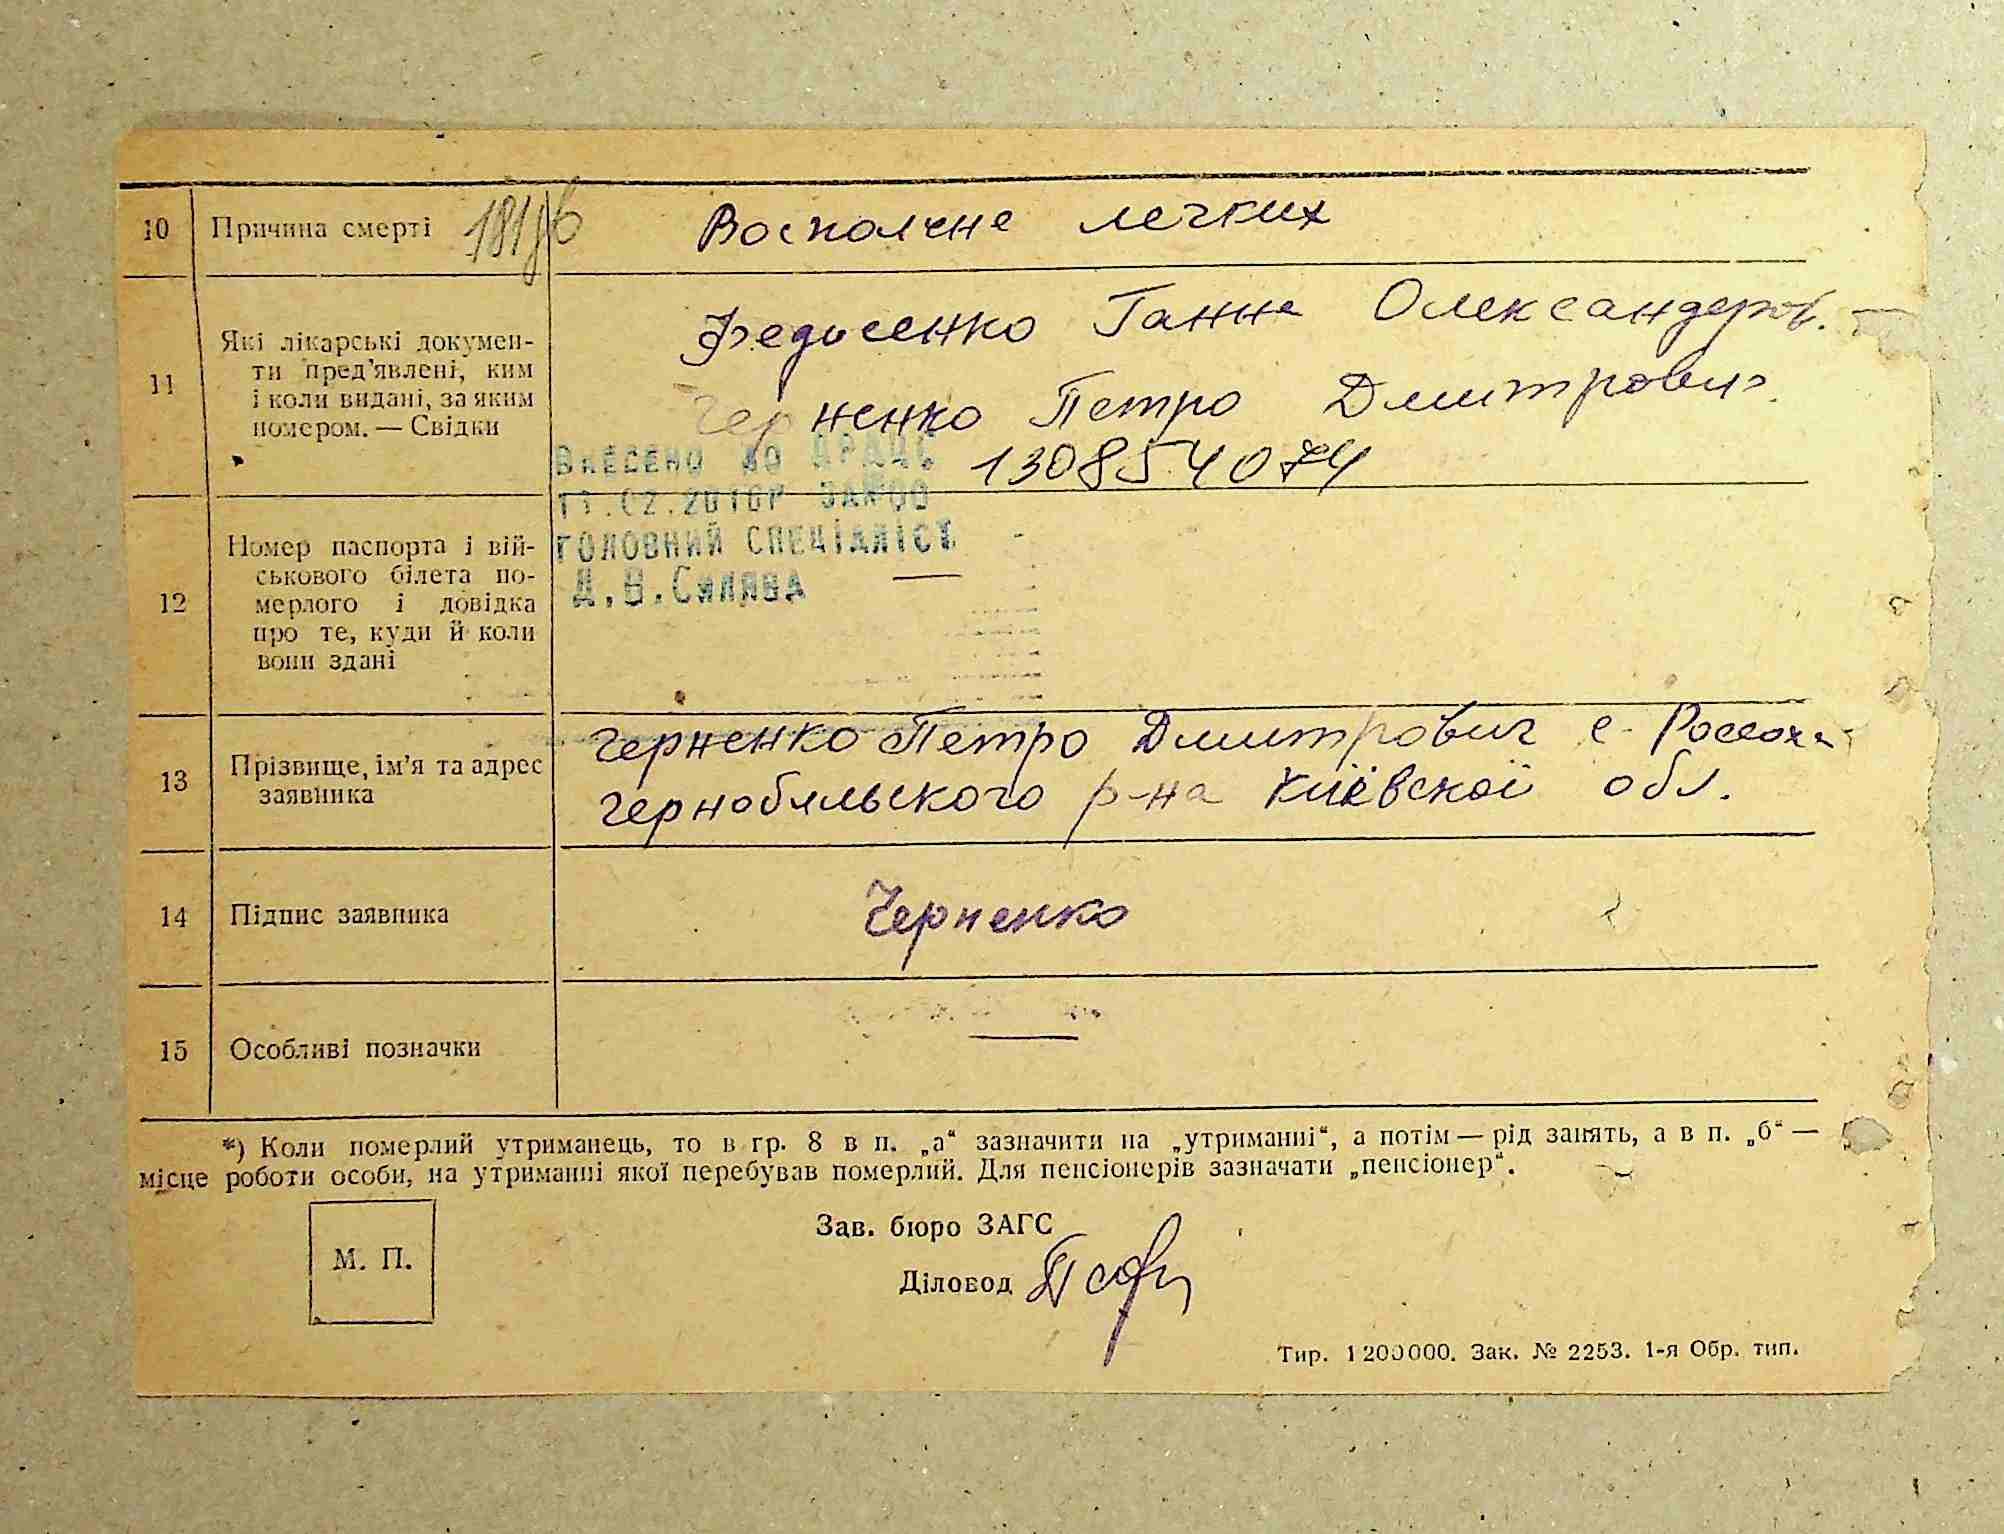 10 Причина смерті Восполене легких
11 Які лікарські докумен-
ти пред'явлені, ким
і коли видані, за яким
номером. — Свідки
Федисенко Ганна Олександров.
Черненко Петро Дмитрович
130854074
Внесено до ДРАЦС
11.02.2010р
Головний спеціаліст
12 Номер паспорта і вій-
ськового білета по-
мерлого і довідка
про те, куди й коли
вони здані
—
13 Прізвище, ім'я та адрес
заявника
Черненко Петро Дмитрович с. Россоха
Чернобильского р-на Київскої обл.
14 Підпис заявника Черненко
15 Особливі позначки —
*) Коли померлий утриманець, то в гр. 8 в п. „а“ зазначити на „утриманні“, а потім — рід занять, а в п. „б“ —
місце роботи особи, на утриманні якої перебував померлий. Для пенсіонерів зазначати „пенсіонер“.
М. П.
Зав. бюро ЗАГС
Діловод
Тир. 1200000. Зак. № 2253. 1-я Обр. тип.